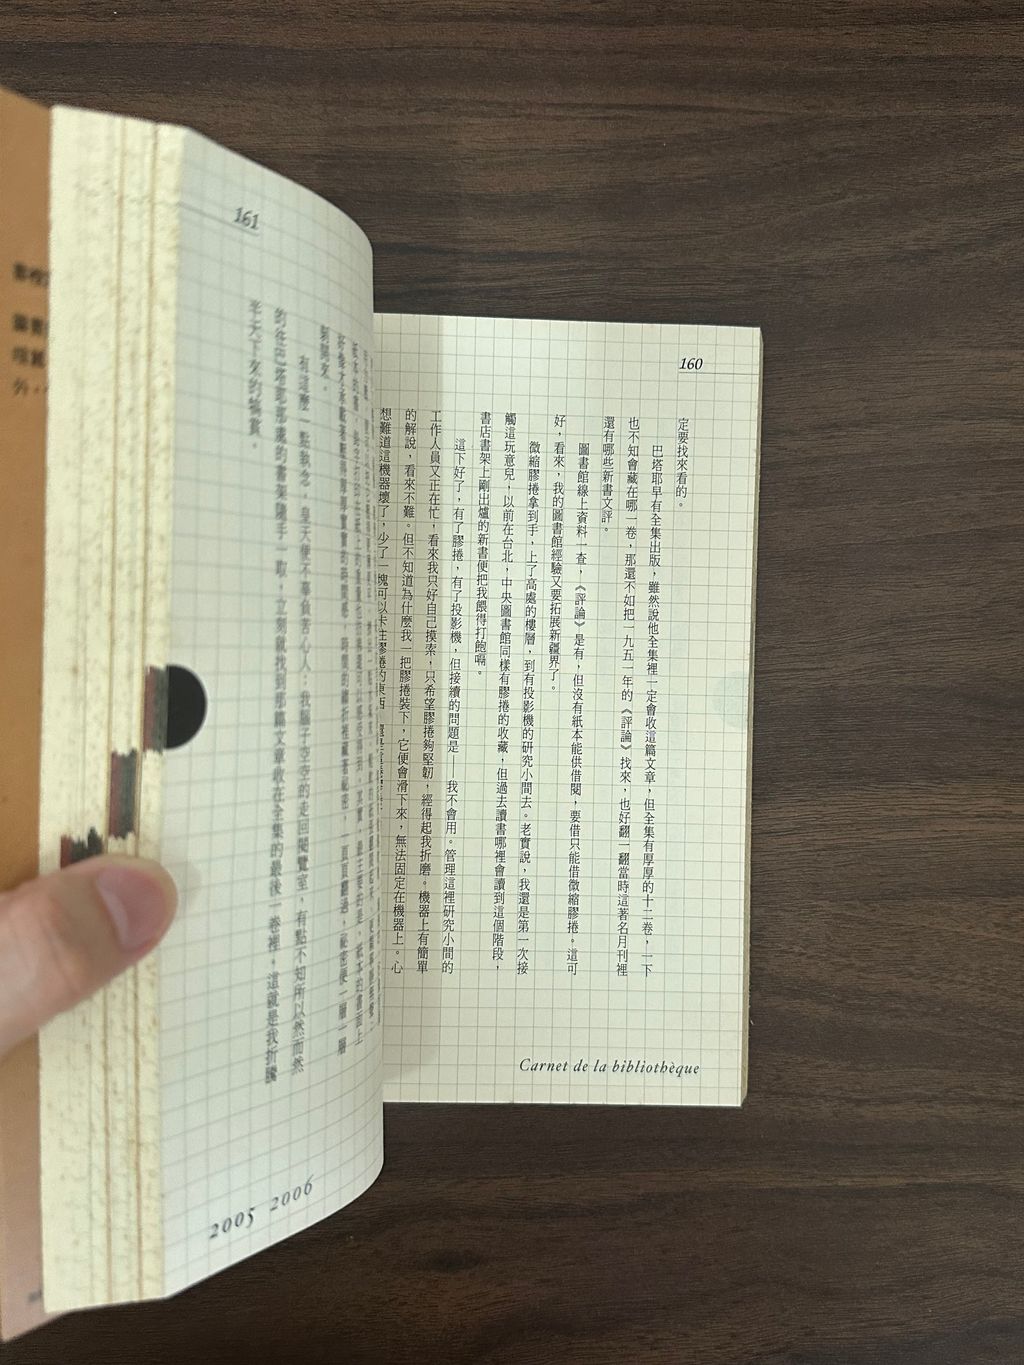 160
定要找來看的。
巴塔耶早有全集出版，雖然說他全集裡一定會收這篇文章，但全集有厚厚的十二卷，一下
也不知會藏在哪一卷，那還不如把一九五一年的《評論》找來，也好翻一翻當時這著名月刊裡
還有哪些新書文評。
圖書館線上資料一查，《評論》是有，但沒有紙本能供借閱，要借只能借微縮膠捲。這可
好，看來，我的圖書館經驗又要拓展新疆界了。
微縮膠捲拿到手，上了高處的樓層，到有投影機的研究小間去。老實說，我還是第一次接
觸這玩意兒，以前在台北，中央圖書館同樣有膠捲的收藏，但過去讀書哪裡會讀到這個階段，
書店書架上剛出爐的新書便把我餵得打飽嗝。
這下好了，有了膠捲，有了投影機，但接續的問題是——我不會用。管理這裡研究小間的
工作人員又正在忙，看來我只好自己摸索，只希望膠捲夠堅韌，經得起我折磨。機器上有簡單
的解說，看來不難。但不知道為什麼我一把膠捲裝下，它便會滑下來，無法固定在機器上。心
想難道這機器壞了，少了一塊可以卡住膠捲的東西
Carnet de la bibliothèque
161
好像才承載著壓得實厚實實的時間感，時間的縐折裡藏著祕密，一頁頁翻過，祕密便一層一層
剝開來。
有這麼一點執念，皇天便不辜負苦心人：我腦子空空的走回閱覽室，有點不知所以然而然
的往巴塔耶那處的書架隨手一取，立刻就找到那篇文章收在全集的最後一卷裡，這就是我折騰
半天下來的犒賞。
2005 2006